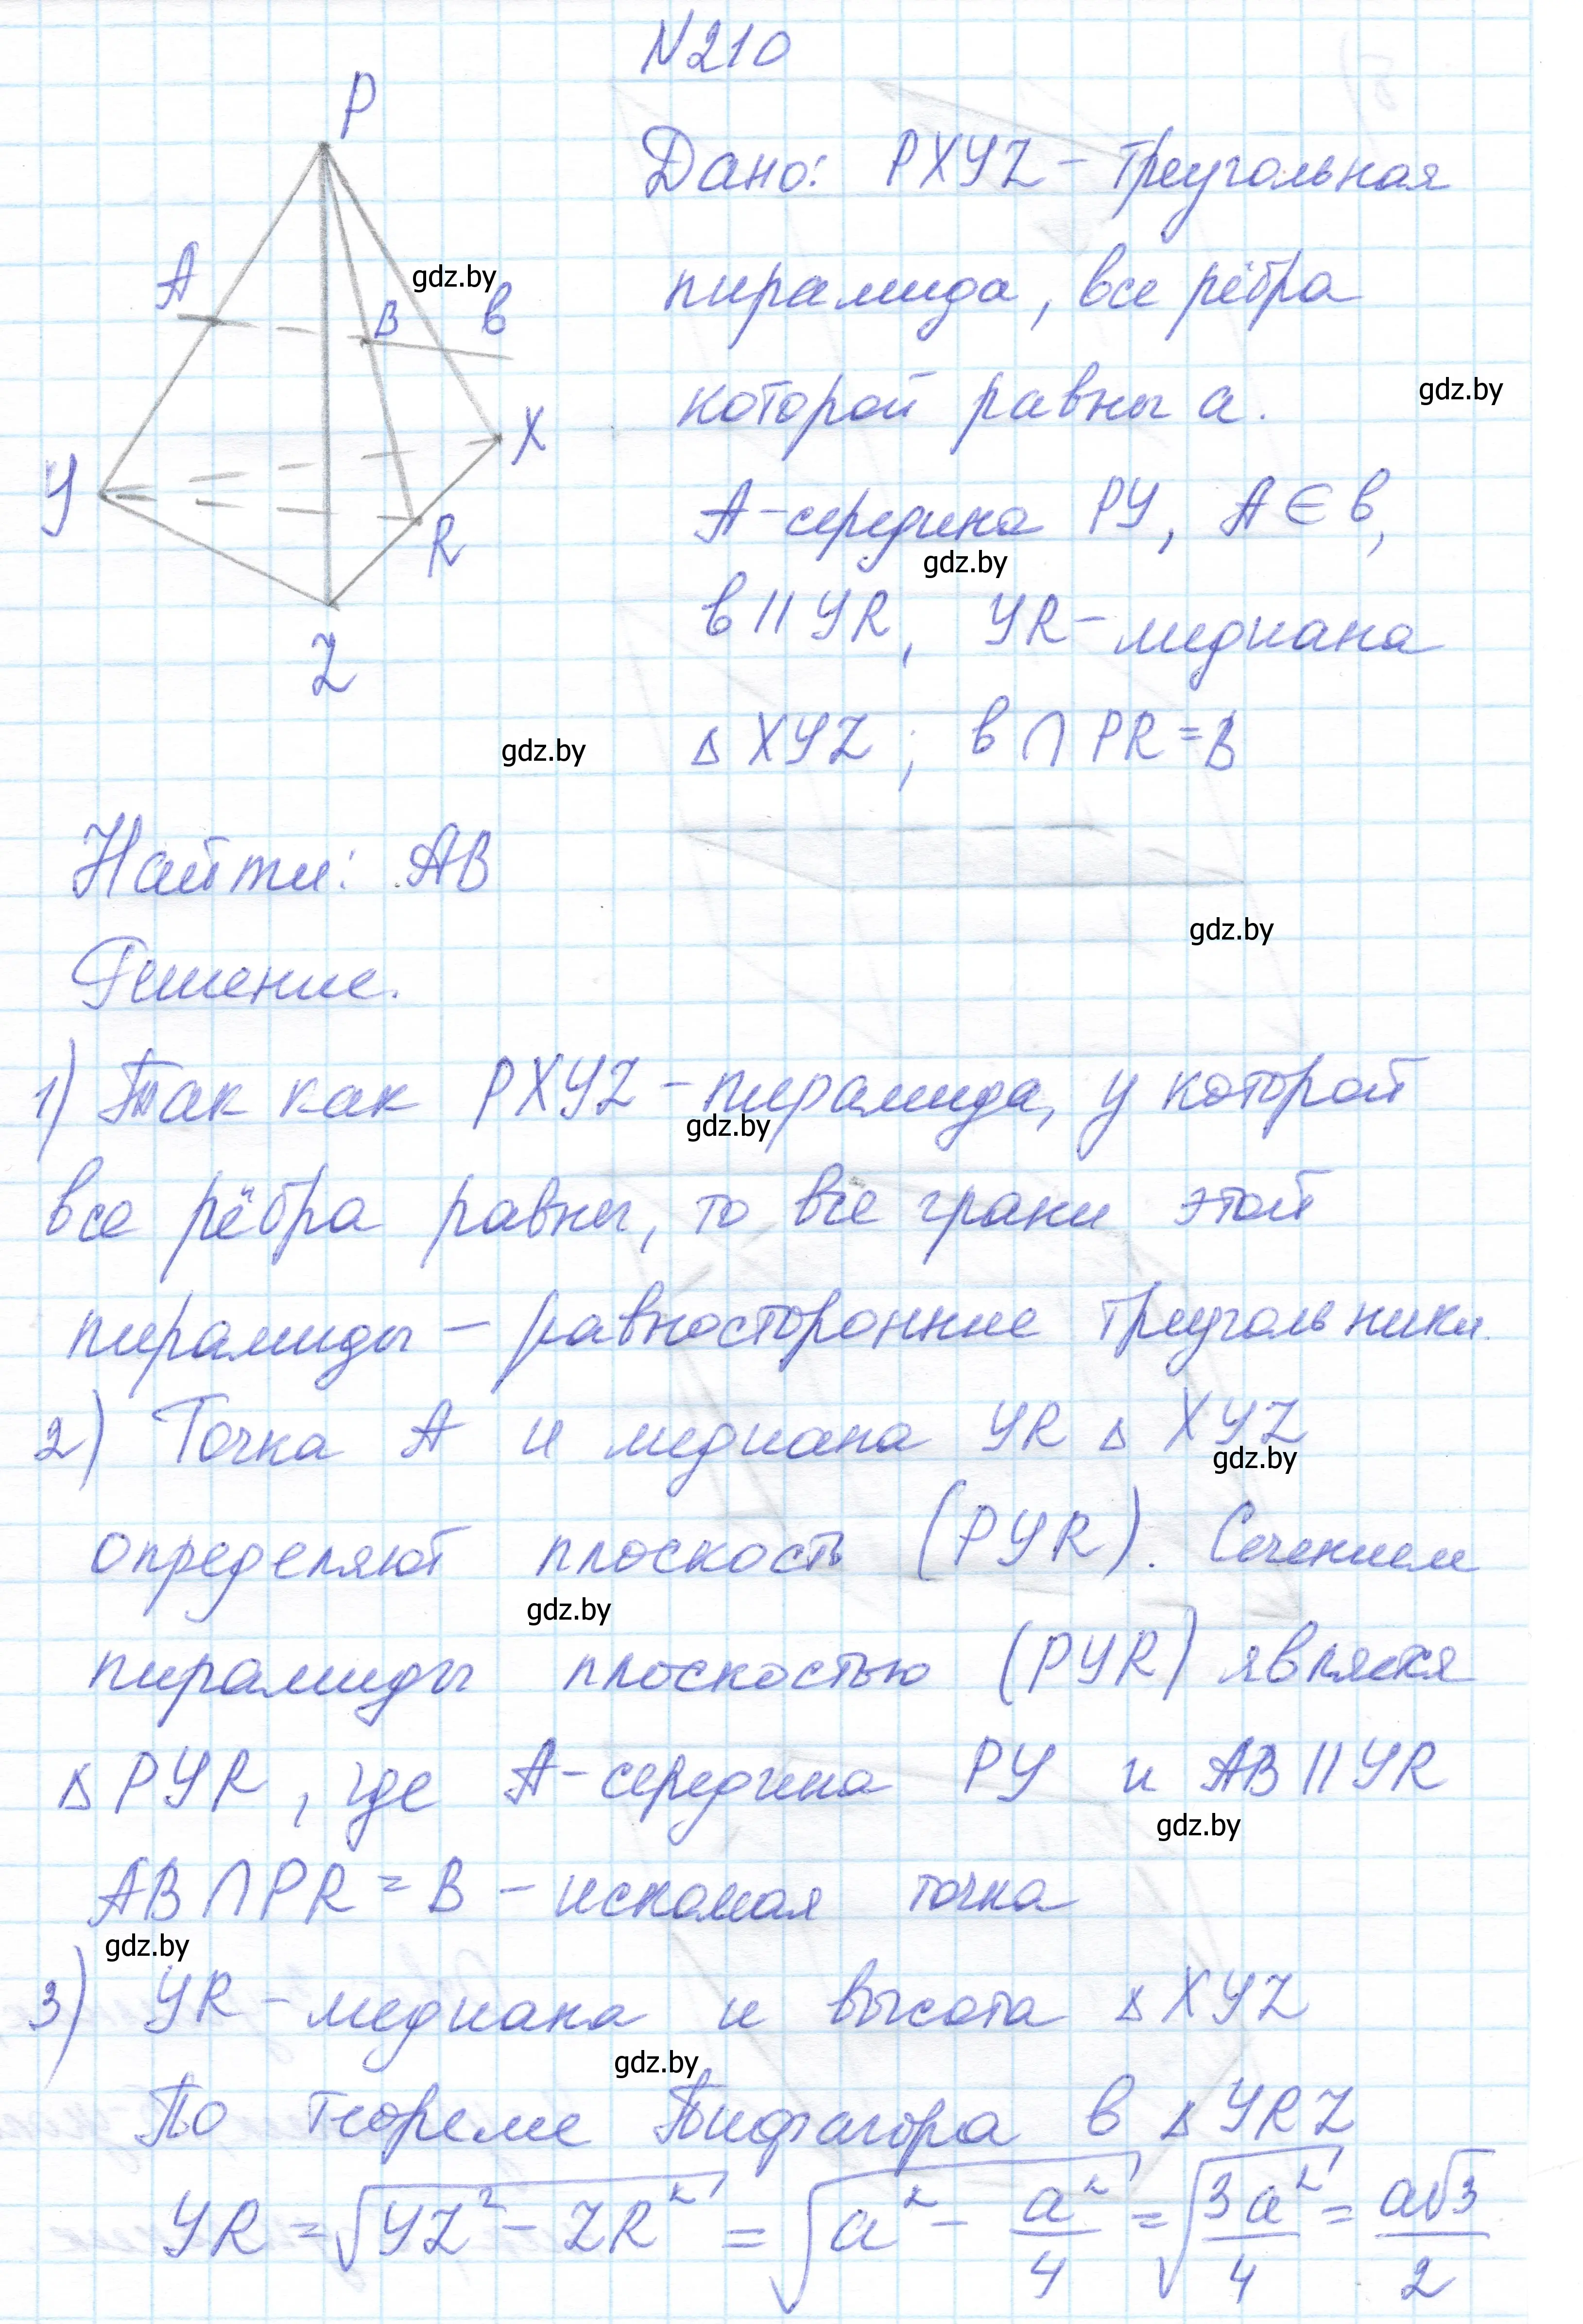 N210
P
Дано: PXYZ - треугольная
A
gdz.by
пирамида, все рёбра
B
в
gdz.by
которой равны а.
X
Y
A - середина PY, A ∈ в,
R
gdz.by
в || YR, YR - медиана
Z
gdz.by
Δ XYZ; в ∩ PR = B
Найти: AB
gdz.by
Решение.
1) Так как PXYZ - пирамида, у которой
gdz.by
все рёбра равны, то все грани этой
пирамиды - равносторонние треугольники.
2) Точка A и медиана YR Δ XYZ
gdz.by
определяют плоскость (PYR). Сечением
gdz.by
пирамиды плоскостью (PYR) является
Δ PYR, где A - середина PY и AB || YR
gdz.by
AB ∩ PR = B - искомая точка
gdz.by
3) YR - медиана и высота Δ XYZ
gdz.by
По теореме Пифагора в Δ YRZ
YR = √(YZ² - ZR²) = √(a² - a²/4) = √(3a²/4) = a√3/2